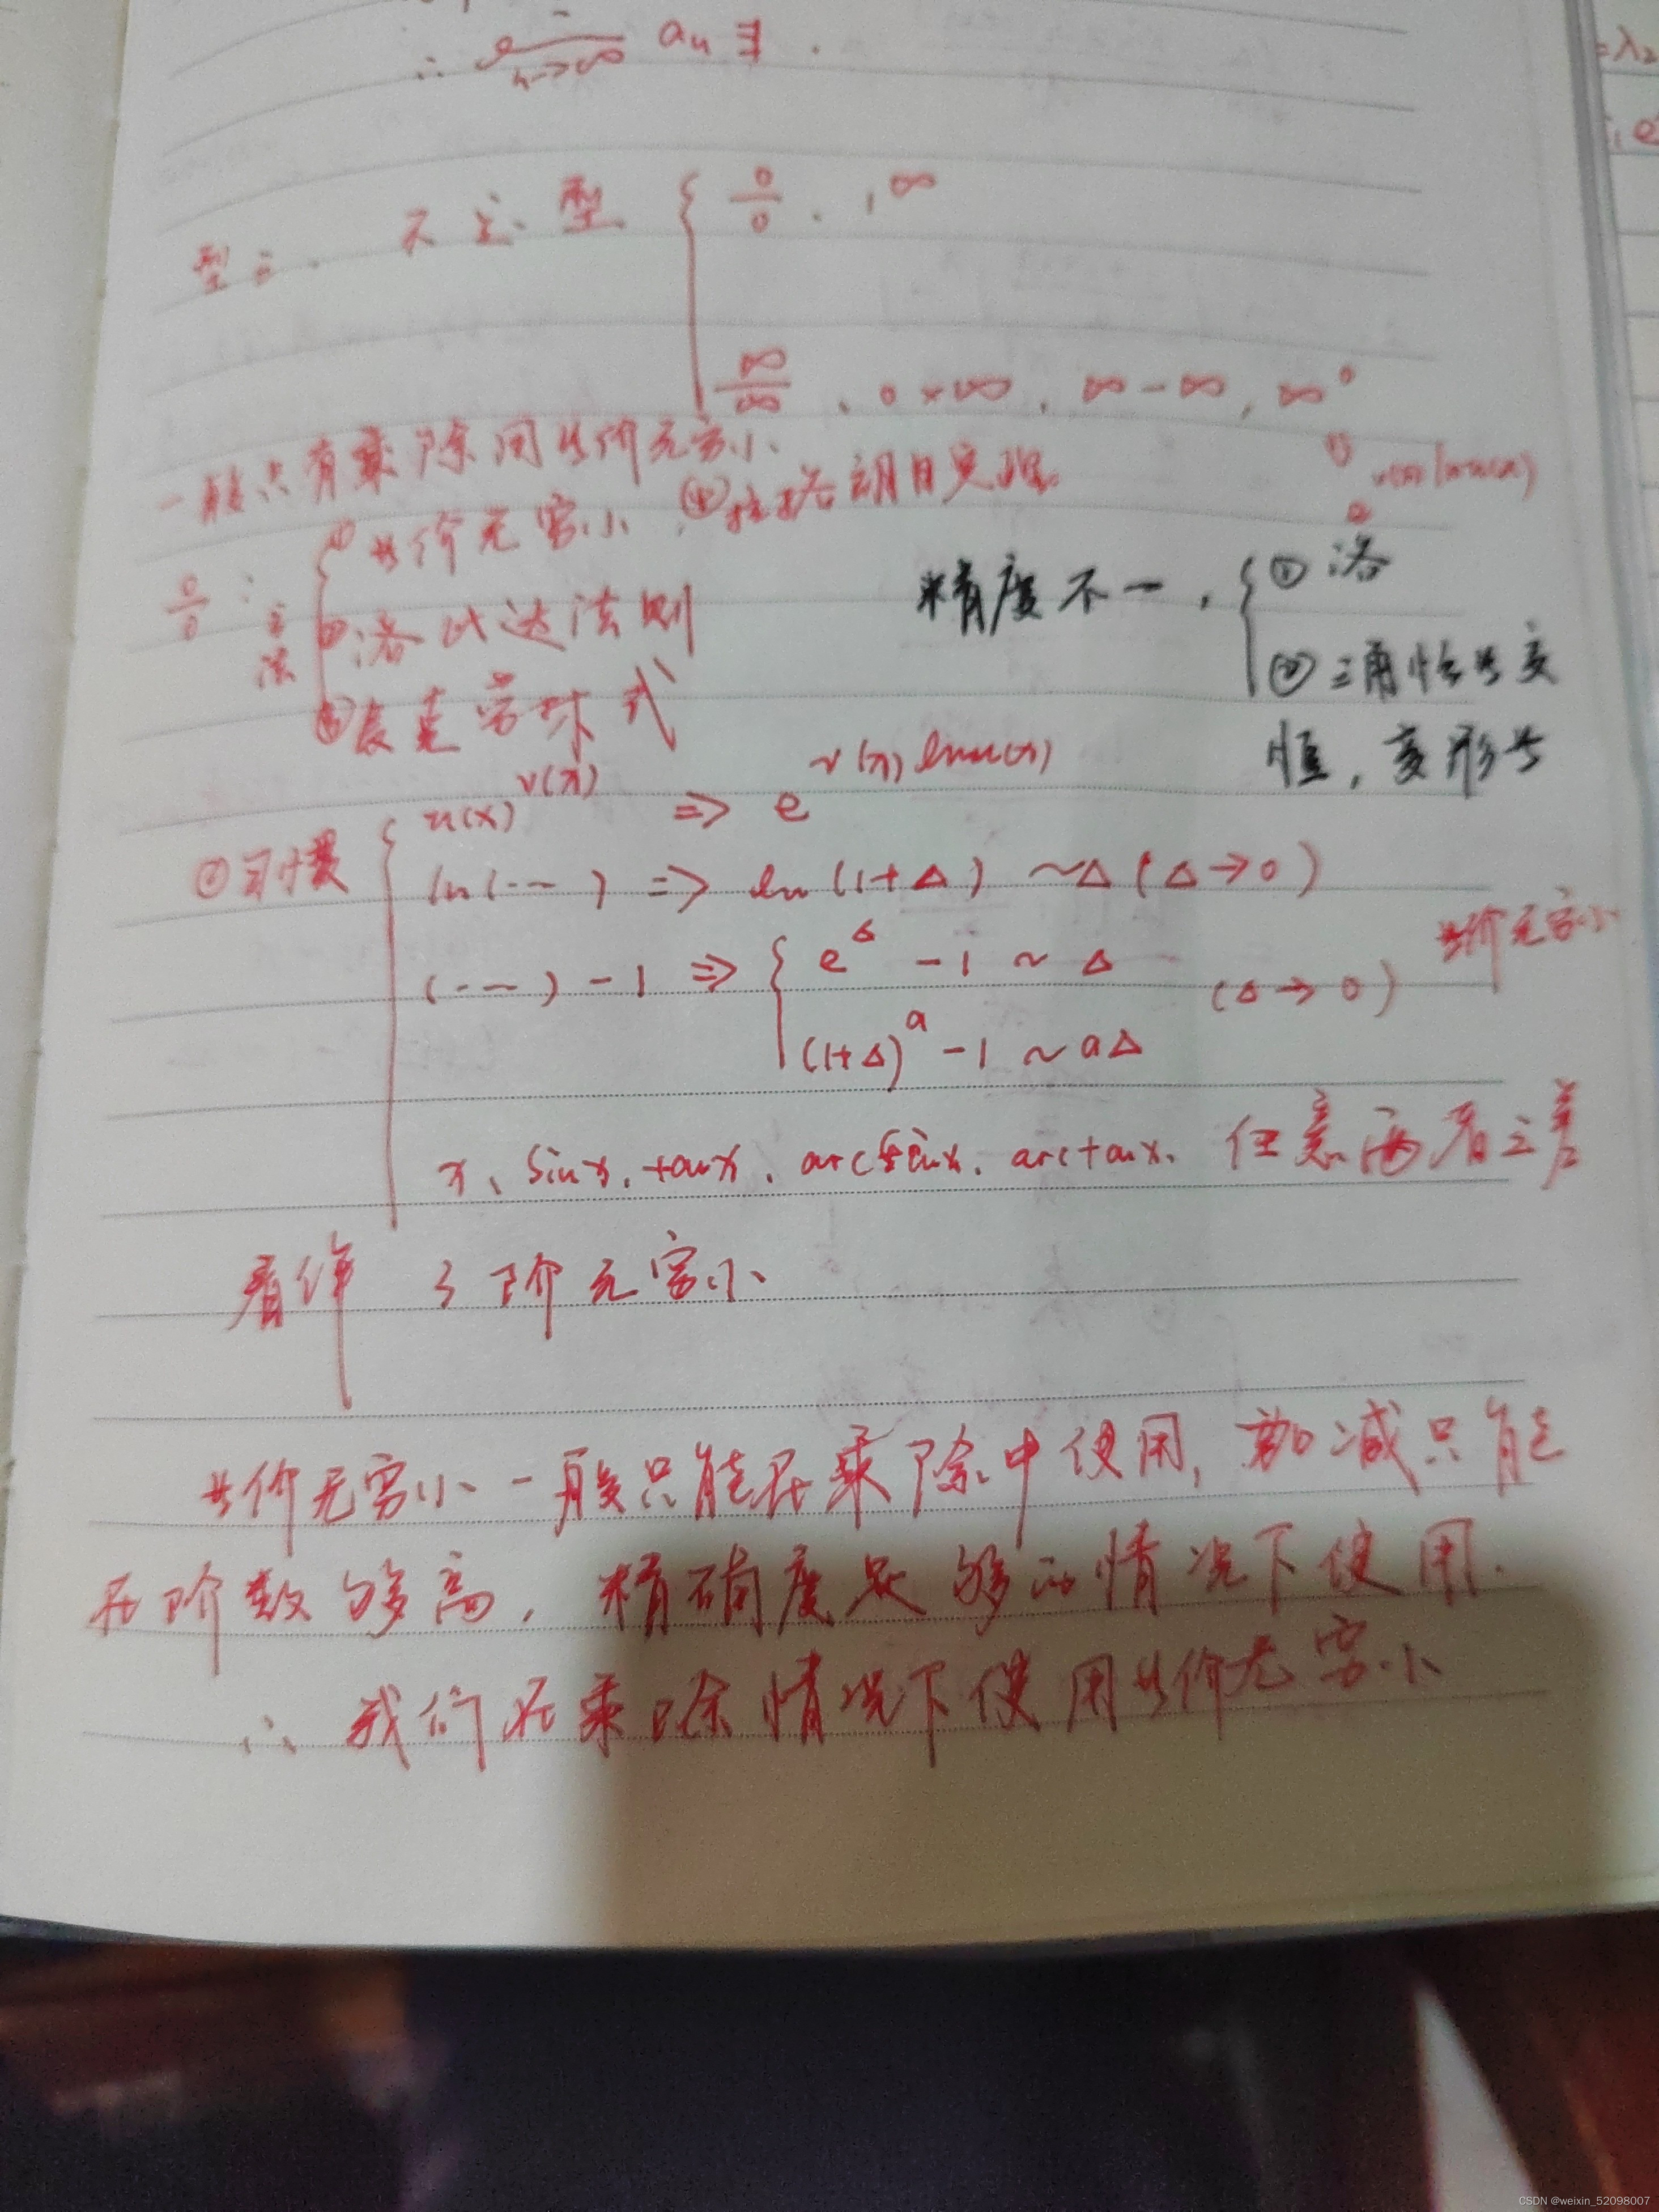 ∴ lim n→∞ aₙ ∃ .
型二. 不定型 { 0/0 . 1^∞
∞/∞ . 0×∞ . ∞-∞, ∞^0
一般只有乘除用等价无穷小
0/0 : 方法 { ① 等价无穷小 . ④拉格朗日定理
② 洛比达法则
③ 麦克劳林式
精度不一 , { ① 洛
② 三角恒等变
恒 , 变形等
② 习惯 { u(x)^v(x) => e^v(x)lnu(x)
ln(---) => ln(1+Δ) ~Δ (Δ→0)
(---)-1 => { e^Δ -1 ~ Δ
(1+Δ)^a -1 ~ aΔ
(Δ→0) 等价无穷小
x、sinx、tanx、arcsinx、arctanx、任意两者之差
看作 3阶无穷小
等价无穷小一般只能在乘除中使用, 加减只能
在阶数够高, 精确度足够的情况下使用.
∴ 我们在乘除情况下使用等价无穷小
=λ₂
CSDN @weixin_52098007